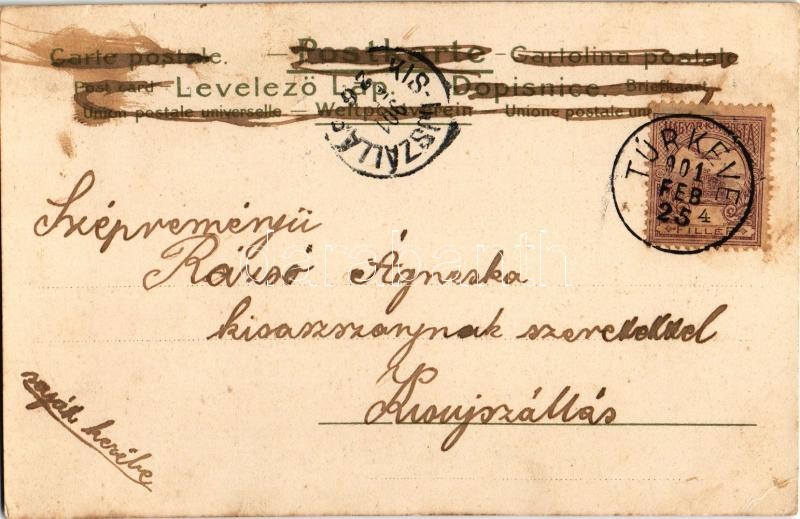 Carte postale. Postkarte Cartolina postale
Post card Levelező L Dopisnice. Briefkaart
Union postale universelle Weltpostverein Unione postale
KIS-UJSZÁLLÁS
901
TÚRKEVE
901
FEB
25
MAGYAR KIR. POSTA
4
FILLÉR
Szépreményü
Rázsó Ágneska
kisaszszonynak szeretettel
Kisujszállás
saját kezébe
darabanth